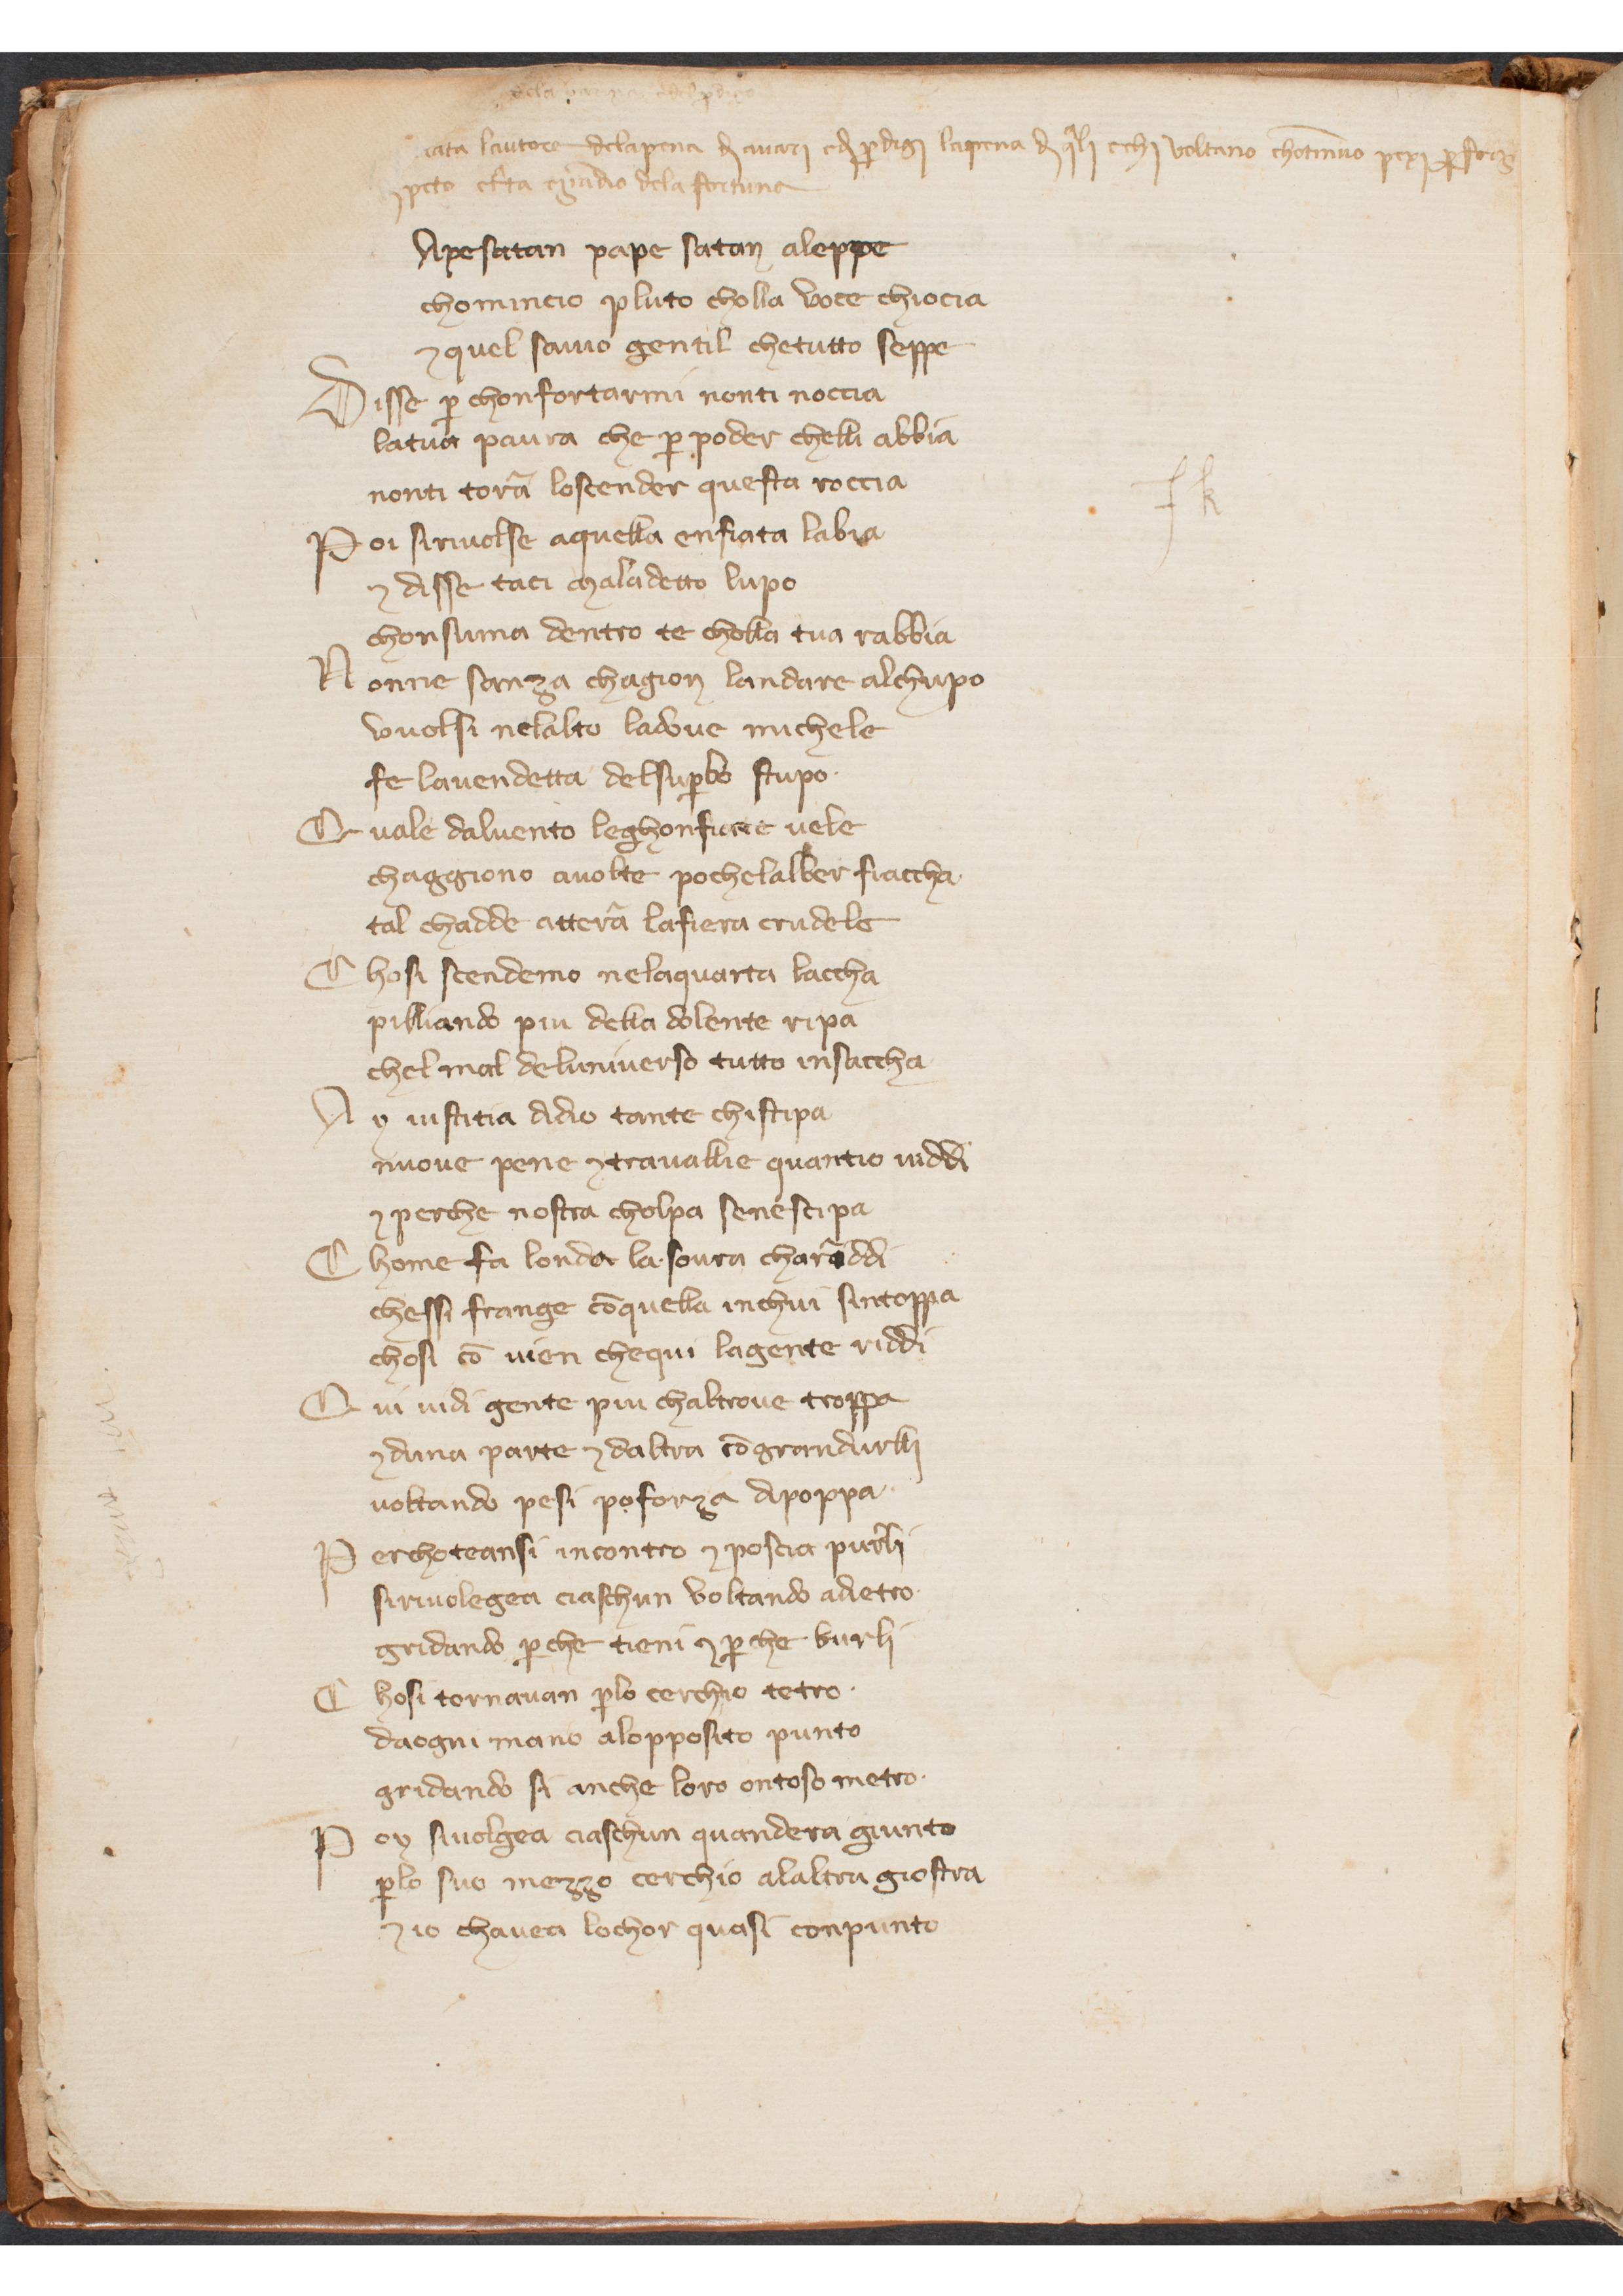 lautore dela pena di avari e di prodigi la pena di q̃li echi voltano chotinuo pexi ꝑ forz
Apesatan pape satan aleppe
chomincio pluto cholla voce chiocia
⁊ quel savio gentil chetutto seppe
Disse ꝑ chonfortarmi nonti noccia
latua paura che ꝑ poder chelli abbia
nonti torã loscender questa roccia
Poi sirivolse aquella enfiata labia
⁊ disse taci maladetto lupo
chonsuma dentro te cholla tua rabbia
Nonne sanza chagion landare alchupo
vuolsi nelalto ladove michele
fe lavendetta delsuꝑbo stupo
Quale dalvento leghonfiate vele
chaggiono avolte pochelalber fiaccha
tal chadde atterã lafiera crudele
Chosi scendemo nelaquarta laccha
pilliando piu della dolente ripa
chel mal deluniverso tutto insaccha
Ay iustitia didio tante chi stipa
nuove pene ⁊ travallie quantio viddi
⁊ perche nostra cholpa sene scipa
Chome fa londa la sovra charĩddi
chessi frange cõquella inchui sintoppa
chosi cõ vien chequi lagente riddi
Qui vidi gente piu chaltrove troppa
⁊ duna parte ⁊ daltra cõ grandurlli
voltando pesi poforza dipoppa
Perchoteansi incontro ⁊ poscia purlli
sirivolegea ciaschun voltando adietro
gridando ꝑche tieni ⁊ ꝑche burli
Chosi tornavan ꝑlo cerchio tetro
daogni mano alopposito punto
gridando si anche loro ontoso metro
Poy sivolgea ciaschun quandera giunto
ꝑlo suo mezzo cerchio alaltra giostra
⁊ io chavea lochor quasi conpunto